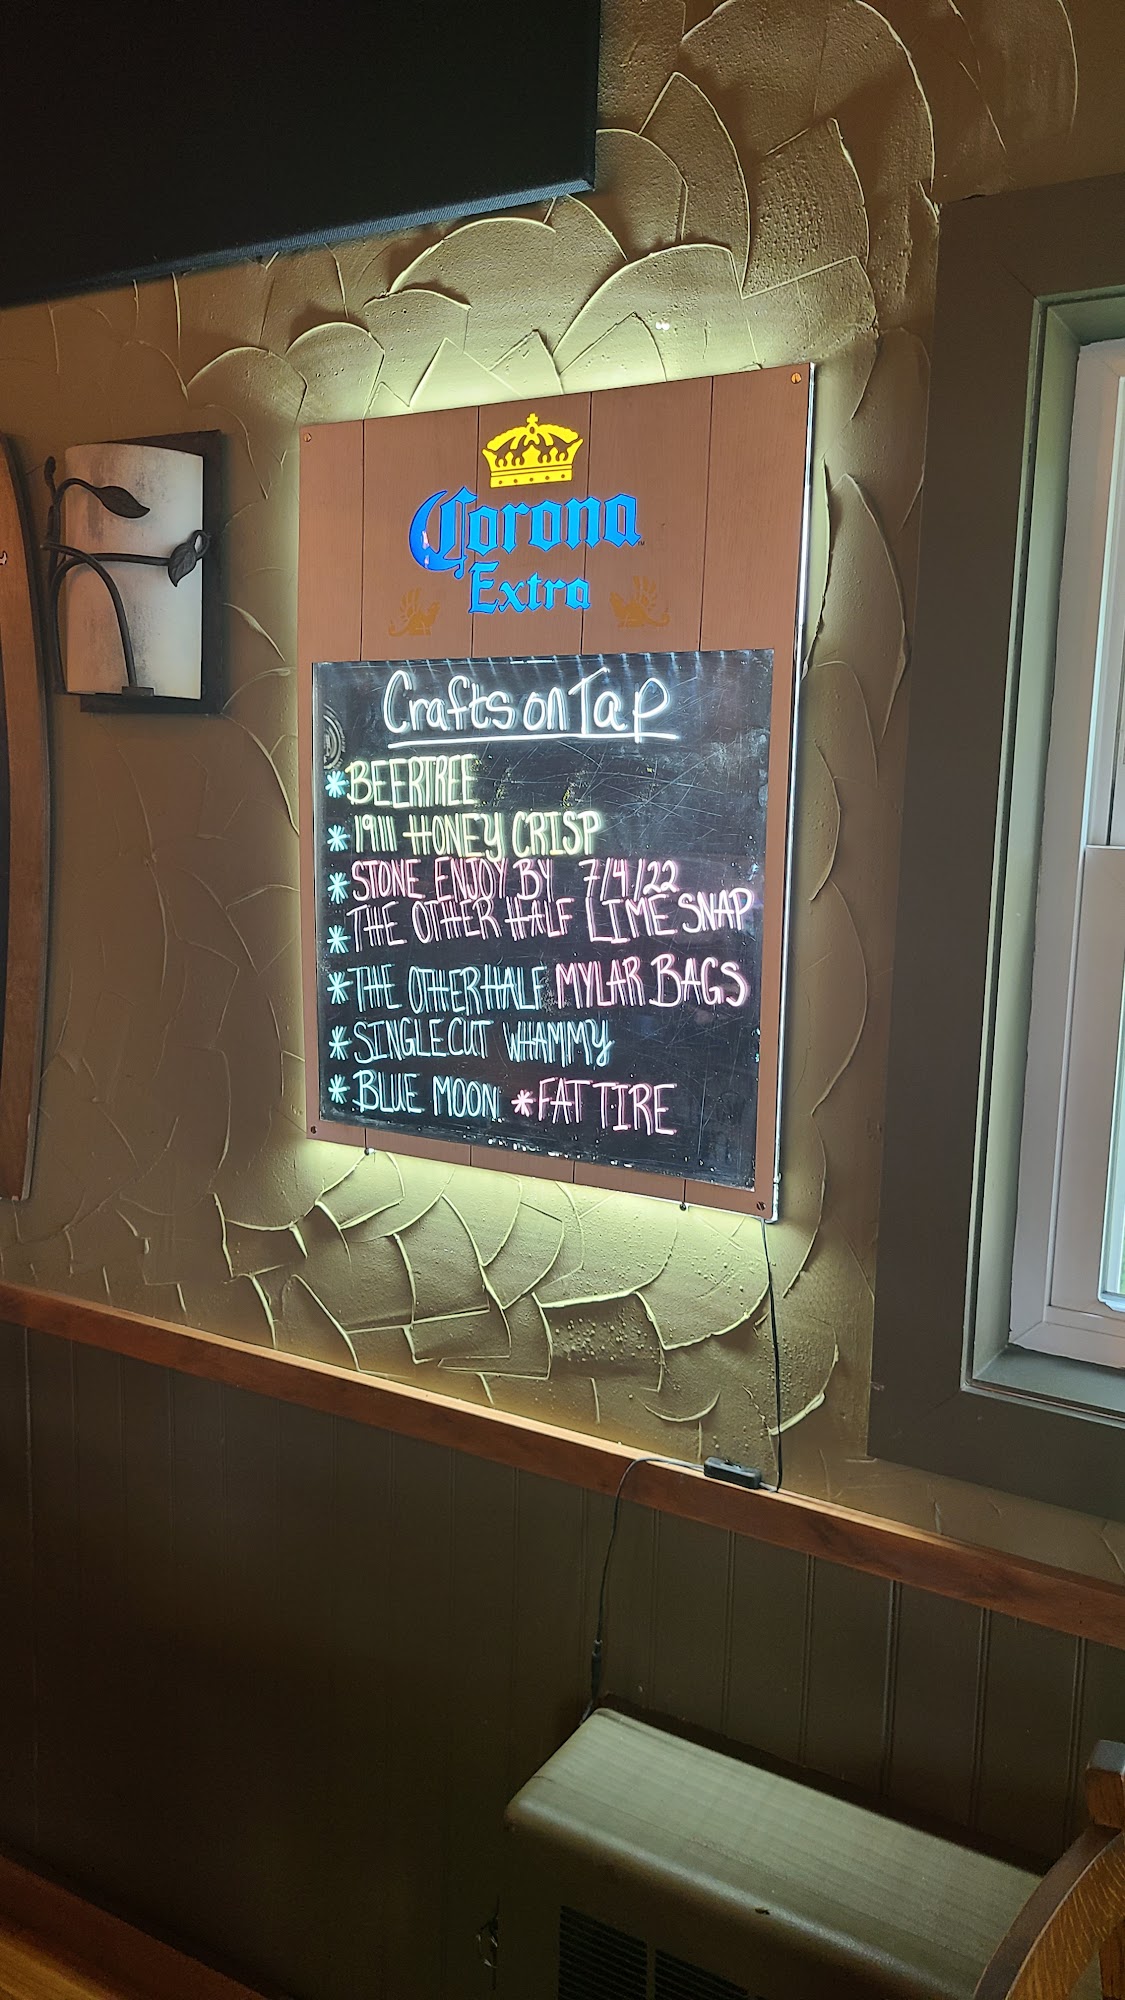 Corona
Extra
Crafts on Tap
* BEERTREE
* 1911 HONEY CRISP
* STONE ENJOY BY 7/4/22
* THE OTHER HALF LIME SNAP
* THE OTHER HALF MYLAR BAGS
* SINGLECUT WHAMMY
* BLUE MOON * FAT TIRE